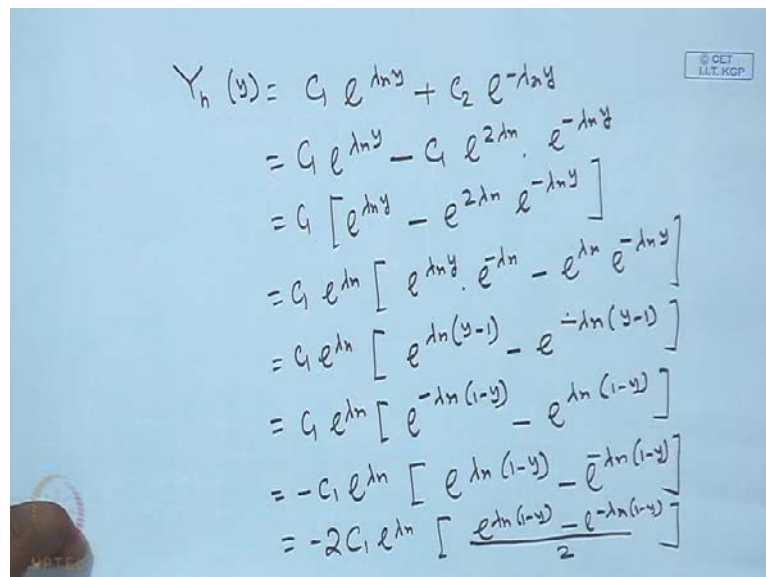 © CET
I.I.T. KGP
Yₙ (y) = C₁ e^{λₙy} + C₂ e^{-λₙy}
= C₁ e^{λₙy} − C₁ e^{2λₙ} . e^{-λₙy}
= C₁ [e^{λₙy} − e^{2λₙ} e^{-λₙy}]
= C₁ e^{λₙ} [ e^{λₙy} . e^{-λₙ} − e^{λₙ} e^{-λₙy} ]
= C₁ e^{λₙ} [ e^{λₙ(y-1)} − e^{-λₙ(y-1)} ]
= C₁ e^{λₙ} [ e^{-λₙ(1-y)} − e^{λₙ(1-y)} ]
= -C₁ e^{λₙ} [ e^{λₙ(1-y)} − e^{-λₙ(1-y)} ]
= -2C₁ e^{λₙ} [ (e^{λₙ(1-y)} − e^{-λₙ(1-y)})/2 ]
NPTEL